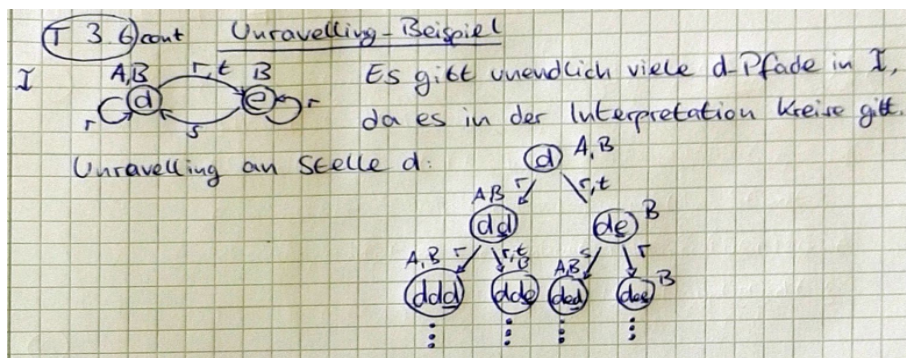 T 3.6 cont Unravelling-Beispiel
I A,B r,t B Es gibt unendlich viele d-Pfade in I,
d e
r r da es in der Interpretation Kreise gibt.
s
Unravelling an Stelle d: d A,B
A,B r r,t
dd de B
A,B r r,t B A,B s r
ddd dde ded dee B